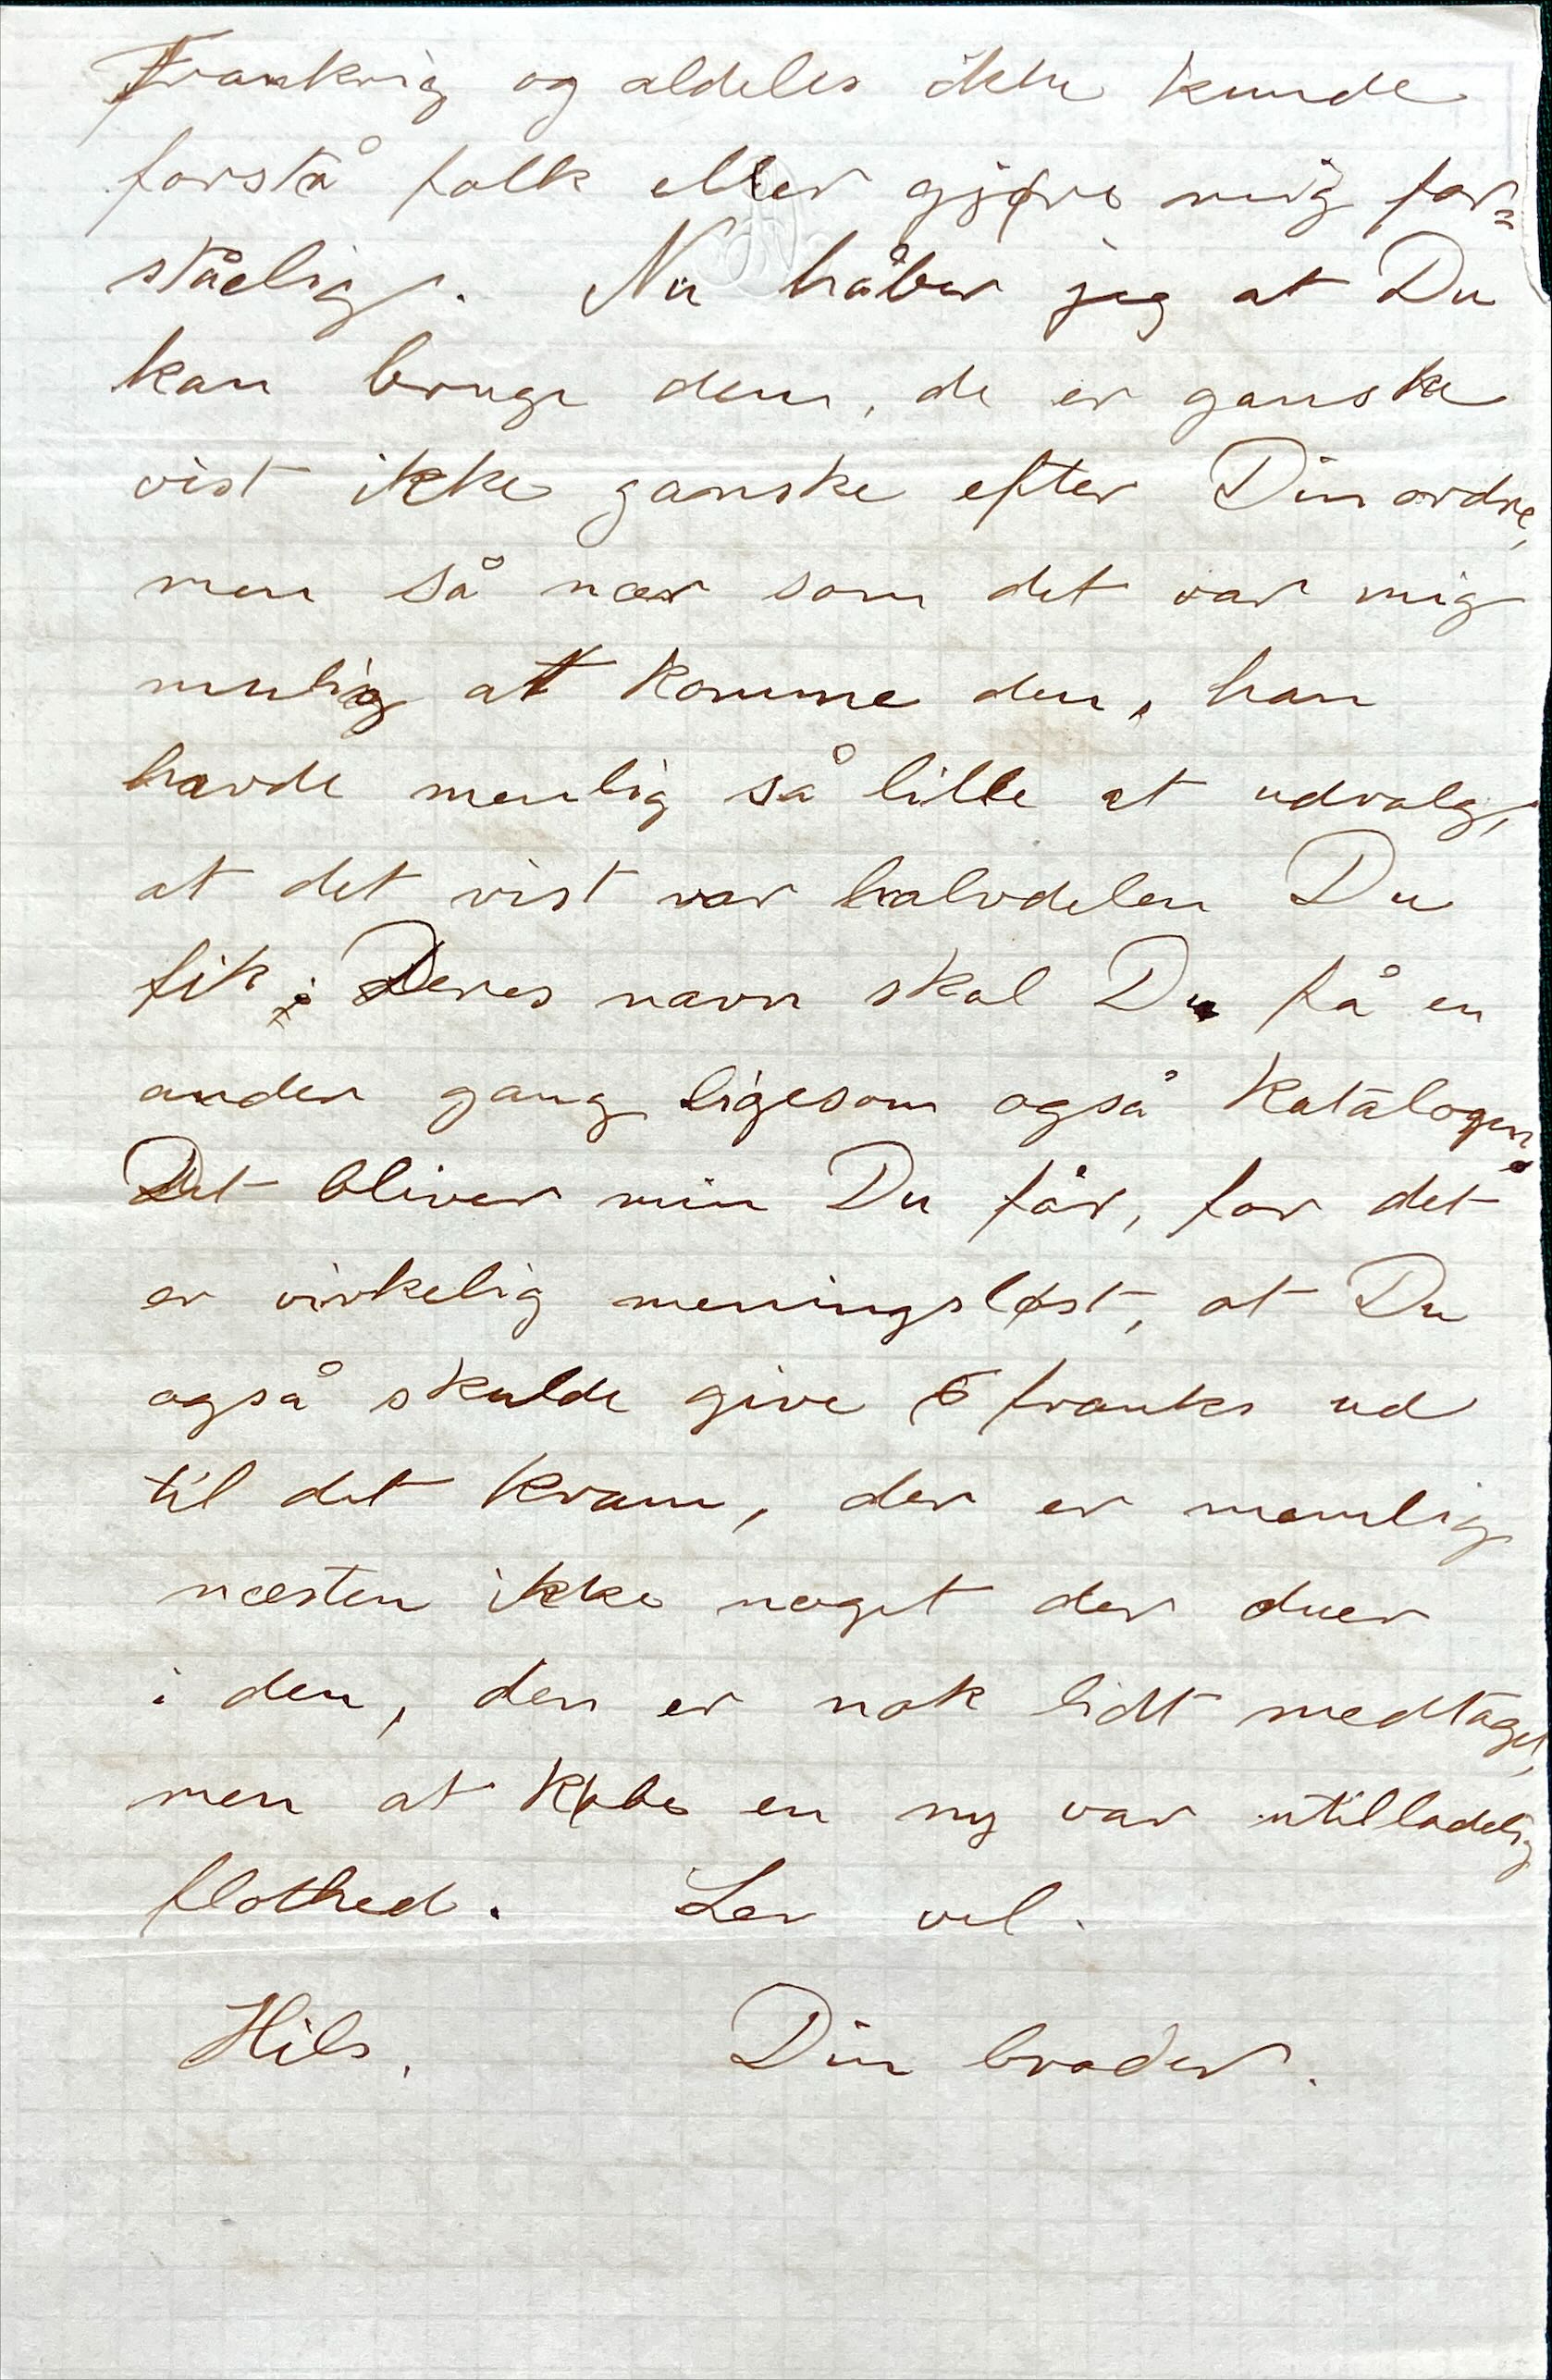 Frankrig og aldeles ikke kunde
forstå folk eller gjøre mig for=
ståelig. Nu håber jeg at Du
kan bruge dem, de er ganske
vist ikke ganske efter Din ordre,
men så nær som det var mig
mulig at komme den, han
havde nemlig så lille et udvalg,
at det vist var halvdelen Du
fik; Deres navn skal Du få en
anden gang ligesom også katalogen.
Det bliver min Du får, for det
er virkelig meningsløst, at Du
også skulde give 6 franks ud
til det kram, der er nemlig
næsten ikke noget der duer
i den, den er nok lidt medtaget,
men at købe en ny var utilladelig
flothed. Lev vel.
Hils. Din broder.